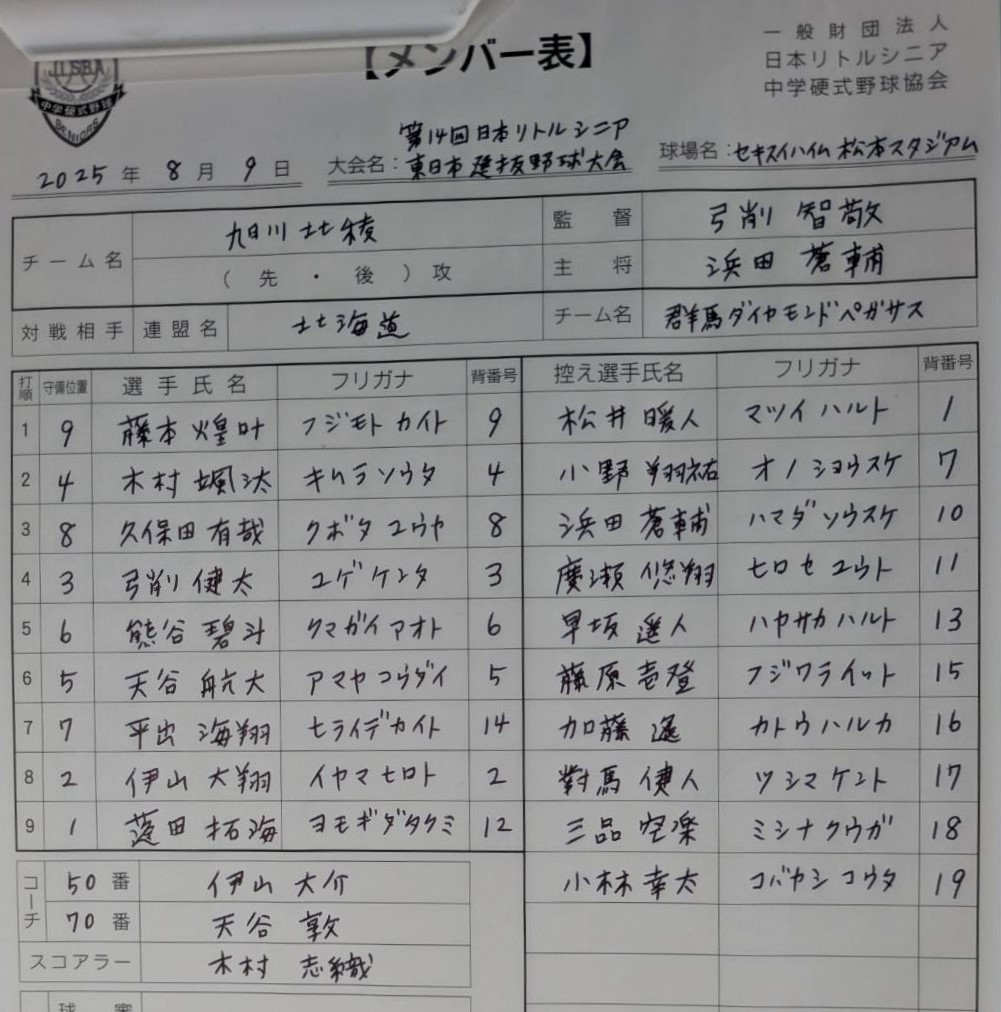 【メンバー表】
一般財団法人
日本リトルシニア
中学硬式野球協会
JLSBA
中学硬式野球
SENIORS
2025 年 8 月 9 日
大会名：第14回日本リトルシニア
東日本選抜野球大会
球場名：セキスイハイム松本スタジアム
チーム名 旭川北稜
（先・後）攻
監督 弓削 智敬
主将 浜田 蒼輔
対戦相手 連盟名 北海道 チーム名 群馬ダイヤモンドペガサス
打順 守備位置 選手氏名 フリガナ 背番号 控え選手氏名 フリガナ 背番号
1 9 藤本 煌叶 フジモト カイト 9 松井 暖人 マツイ ハルト 1
2 4 木村 颯汰 キムラ ソウタ 4 小野 翔祐 オノ ショウスケ 7
3 8 久保田 有哉 クボタ ユウヤ 8 浜田 蒼輔 ハマダ ソウスケ 10
4 3 弓削 健太 ユゲ ケンタ 3 廣瀬 悠翔 ヒロセ ユウト 11
5 6 熊谷 碧斗 クマガイ アオト 6 早坂 遥人 ハヤサカ ハルト 13
6 5 天谷 航大 アマヤ コウダイ 5 藤原 壱登 フジワラ イット 15
7 7 平出 海翔 ヒライデ カイト 14 加藤 遥 カトウ ハルカ 16
8 2 伊山 大翔 イヤマ ヒロト 2 對馬 健人 ツシマ ケント 17
9 1 蓬田 拓海 ヨモギダ タクミ 12 三品 空楽 ミシナ クウガ 18
小林 幸太 コバヤシ コウタ 19
コーチ 50番 伊山 大介
70番 天谷 敦
スコアラー 木村 志織
球審